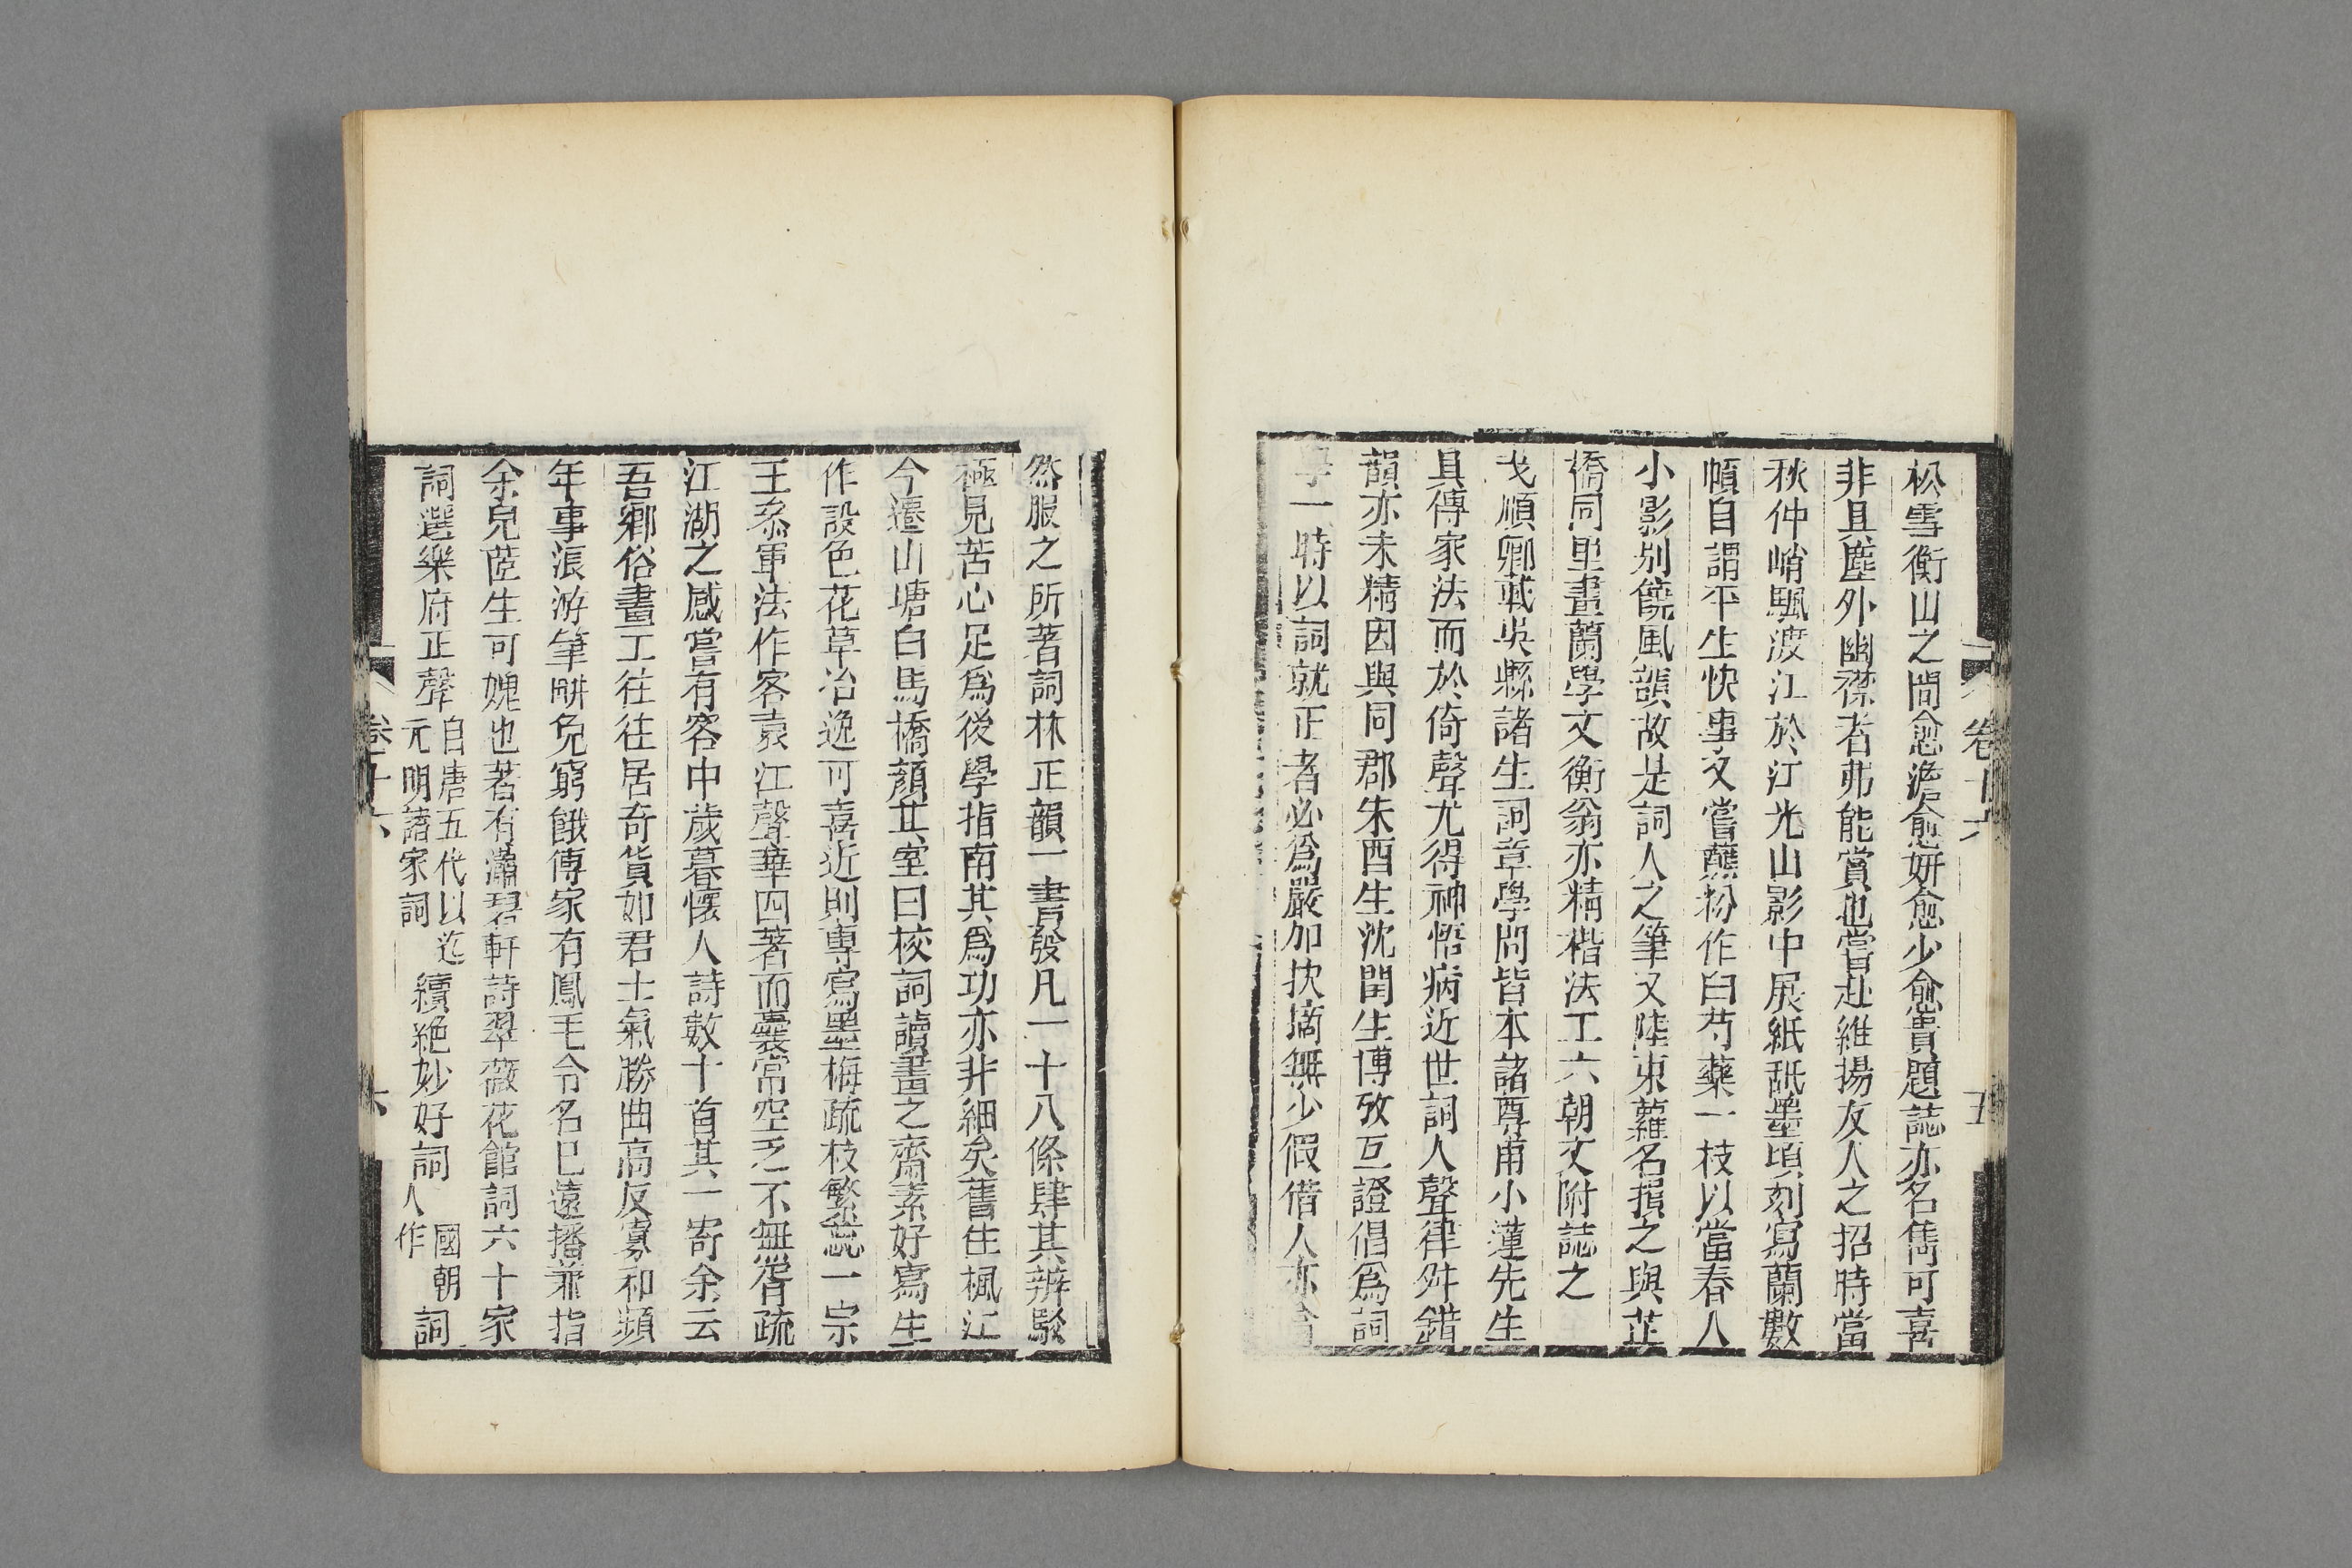 松雪衡山之間愈澹愈妍愈少愈貴題誌亦名雋可喜
非具塵外幽襟者弗能賞也嘗赴維揚友人之招時當
秋仲峭颿渡江於江光山影中展紙舐墨頃刻寫蘭數
幀自謂平生快事又嘗蘸粉作白芍藥一枝以當春人
小影別饒風韻故是詞人之筆又陸東蘿名損之與芷
橋同里畫蘭學文衡翁亦精楷法工六朝文附誌之
戈順卿載吳縣諸生詞章學問皆本諸尊甫小蓮先生
具傳家法而於倚聲尤得神悟病近世詞人聲律舛錯
韻亦未精因與同郡朱酉生沈閏生博攷互證倡爲詞
學一時以詞就正者必爲嚴加抉摘無少假借人亦
卷十六
五
然服之所著詞林正韻一書發凡一十八條肆其辨駁
極見苦心足爲後學指南其爲功亦非細矣舊住楓江
今遷山塘白馬橋顏其室曰校詞讀畫之齋素好寫生
作設色花草冶逸可喜近則專寫墨梅疏枝繁蕊一宗
王叅軍法作客袁江聲華四著而囊常空乏不無胥疏
江湖之感嘗有客中歲暮懷人詩數十首其一寄余云
吾鄉俗畫工往往居奇貨如君士氣勝曲高反寡和頻
年事浪游筆畊免窮餓傳家有鳳毛令名已遠播兼指
余兒蓙生可媿也著有瀟碧軒詩翠薇花館詞六十家
詞選樂府正聲自唐五代以迄元明諸家詞續絕妙好詞國朝人作詞
卷十六
六